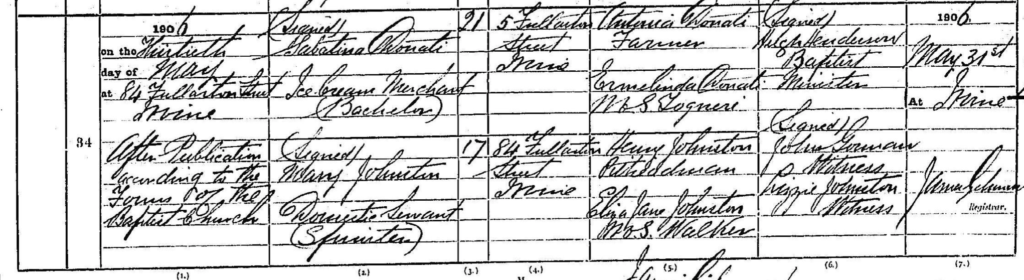 1906
on the Thirtieth
day of May
at 84 Fullarton Street
Irvine
34
After Publication
according to the
Forms of the
Baptist Church
(Signed)
Sabatina Donati
Ice Cream Merchant
(Bachelor)
(Signed)
Mary Johnston
Domestic Servant
(Spinster)
21
17
5 Fullarton
Street
Irvine
84 Fullarton
Street
Irvine
Antonia Donati
Farmer
Ermelinda Donati
M.S. Togneri
Henry Johnston
Eliza Jane Johnston
M.S. Walker
(Signed)
Henderson
Baptist
Minister
(Signed)
John Gorman
Witness
Lizzie Johnston
Witness
1906
May 31st
At Irvine
James
Registrar.
(1.) (2.) (3.) (4.) (5.) (6.) (7.)